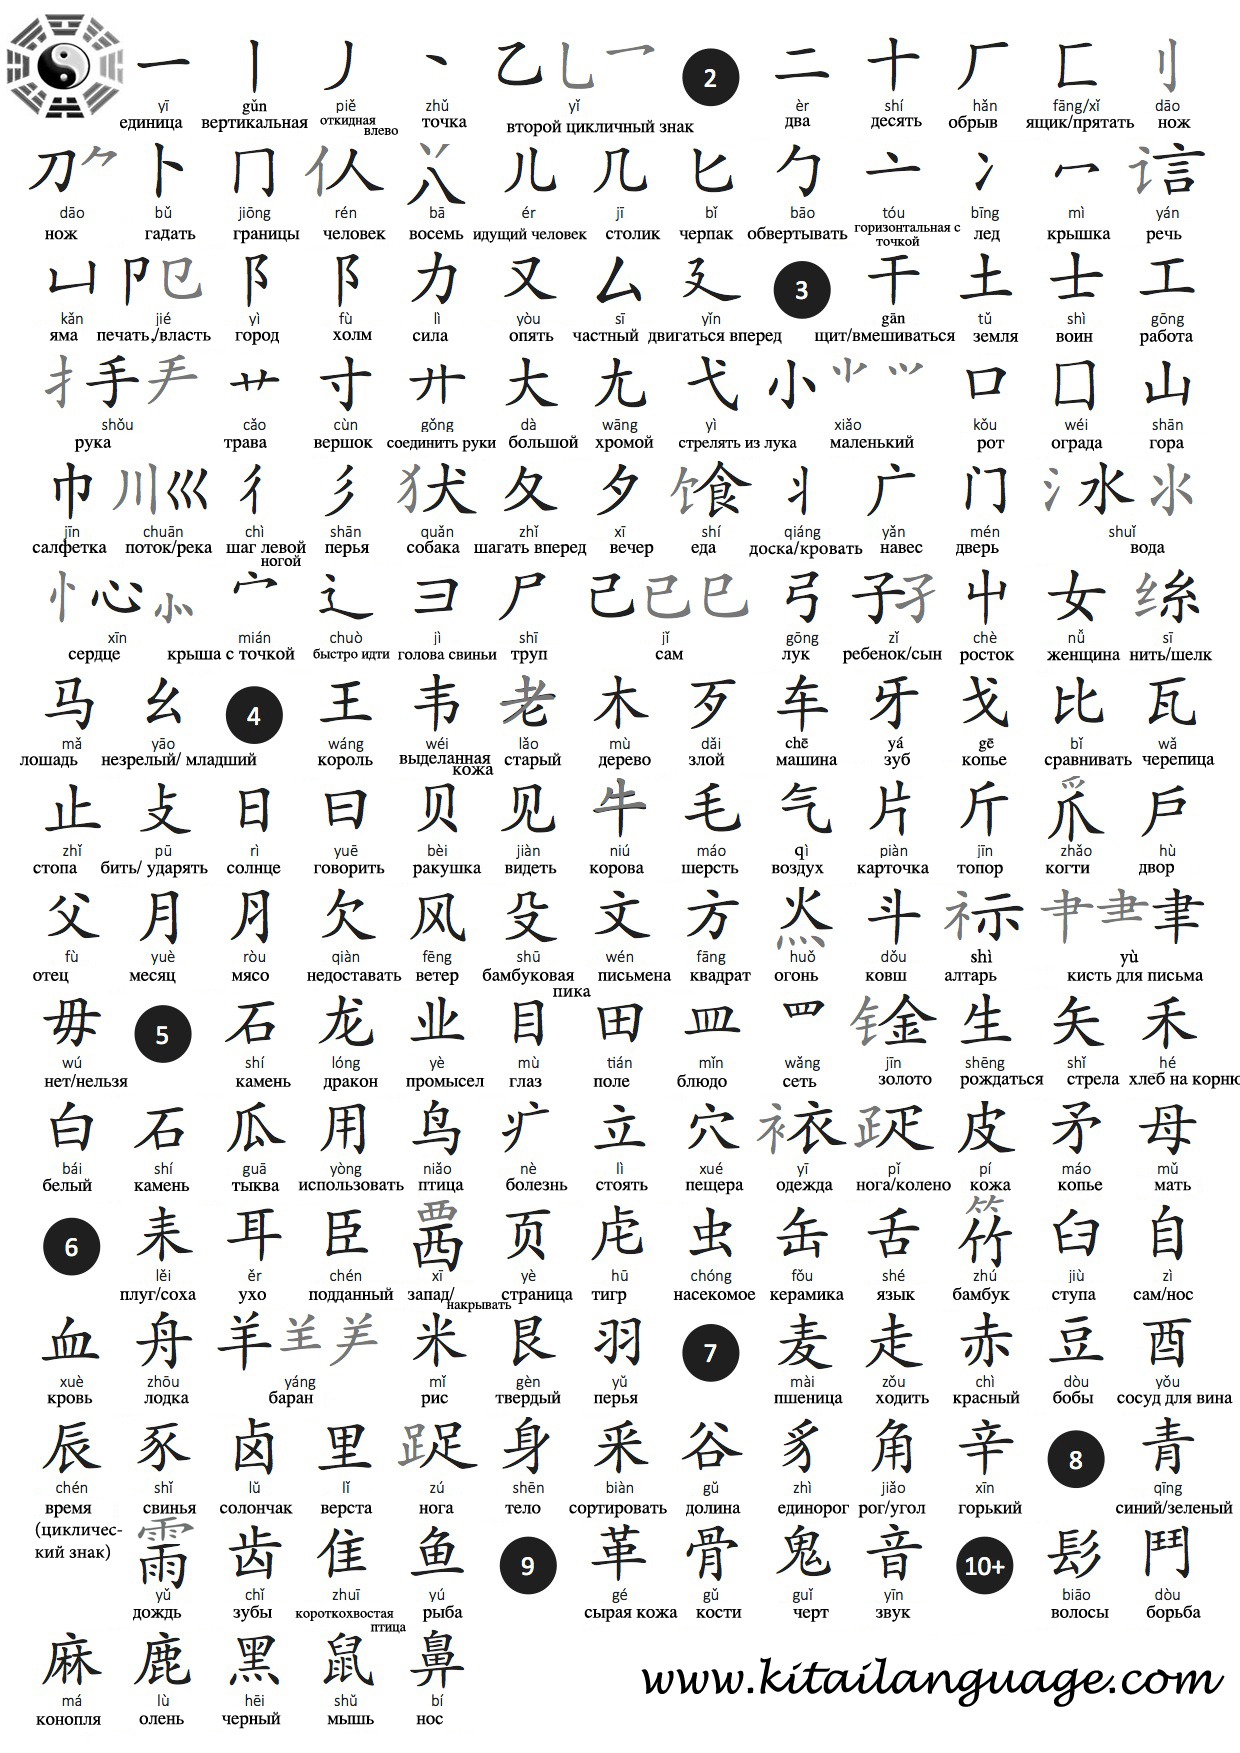 一 丨 丿 丶 乙乚乛 2 二 十 厂 匚 刂
yī gǔn piě zhǔ yǐ èr shí hǎn fāng/xǐ dāo
единица вертикальная откидная влево точка второй цикличный знак два десять обрыв ящик/прятать нож
刀⺈ 卜 冂 亻人 丷八 儿 几 匕 勹 亠 冫 冖 讠言
dāo bǔ jiōng rén bā ér jī bǐ bāo tóu bīng mì yán
нож гадать границы человек восемь идущий человек столик черпак обвертывать горизонтальная с точкой лед крышка речь
凵 卩㔾 阝 阝 力 又 厶 廴 3 干 土 士 工
kǎn jié yì fù lì yòu sī yǐn gān tǔ shì gōng
яма печать,/власть город холм сила опять частный двигаться вперед щит/вмешиваться земля воин работа
扌手龵 艹 寸 廾 大 尢 弋 小⺌⺍ 口 囗 山
shǒu cǎo cùn gǒng dà wāng yì xiǎo kǒu wéi shān
рука трава вершок соединить руки большой хромой стрелять из лука маленький рот ограда гора
巾 川巛 彳 彡 犭犬 夂 夕 饣食 丬 广 门 氵水氺
jīn chuān chì shān quǎn zhǐ xī shí qiáng yǎn mén shuǐ
салфетка поток/река шаг левой ногой перья собака шагать вперед вечер еда доска/кровать навес дверь вода
忄心⺗ 宀 辶 彐 尸 己已巳 弓 子孑 屮 女 纟糸
xīn mián chuò jì shī jǐ gōng zǐ chè nǚ sī
сердце крыша с точкой быстро идти голова свиньи труп сам лук ребенок/сын росток женщина нить/шелк
马 幺 4 王 韦 老 木 歹 车 牙 戈 比 瓦
mǎ yāo wáng wéi lǎo mù dǎi chē yá gē bǐ wǎ
лошадь незрелый/ младший король выделанная кожа старый дерево злой машина зуб копье сравнивать черепица
止 攴 日 曰 贝 见 牛 毛 气 片 斤 爫爪 户
zhǐ pū rì yuē bèi jiàn niú máo qì piàn jīn zhǎo hù
стопа бить/ ударять солнце говорить ракушка видеть корова шерсть воздух карточка топор когти двор
父 月 月 欠 风 殳 文 方 火灬 斗 礻示 肀⺻聿
fù yuè ròu qiàn fēng shū wén fāng huǒ dǒu shì yù
отец месяц мясо недоставать ветер бамбуковая пика письмена квадрат огонь ковш алтарь кисть для письма
毋 5 石 龙 业 目 田 皿 罒 钅金 生 矢 禾
wú shí lóng yè mù tián mǐn wǎng jīn shēng shǐ hé
нет/нельзя камень дракон промысел глаз поле блюдо сеть золото рождаться стрела хлеб на корню
白 石 瓜 用 鸟 疒 立 穴 衤衣 𤴔疋 皮 矛 母
bái shí guā yòng niǎo nè lì xué yī pǐ pí máo mǔ
белый камень тыква использовать птица болезнь стоять пещера одежда нога/колено кожа копье мать
6 耒 耳 臣 覀西 页 虍 虫 缶 舌 ⺮竹 臼 自
lěi ěr chén xī yè hū chóng fǒu shé zhú jiù zì
плуг/соха ухо подданный запад/ накрывать страница тигр насекомое керамика язык бамбук ступа сам/нос
血 舟 羊⺶⺷ 米 艮 羽 7 麦 走 赤 豆 酉
xuè zhōu yáng mǐ gèn yǔ mài zǒu chì dòu yǒu
кровь лодка баран рис твердый перья пшеница ходить красный бобы сосуд для вина
辰 豕 卤 里 ⻊足 身 釆 谷 豸 角 辛 8 青
chén shǐ lǔ lǐ zú shēn biàn gǔ zhì jiǎo xīn qīng
время (цикличес- кий знак) свинья солончак верста нога тело сортировать долина единорог рог/угол горький синий/зеленый
⻗雨 齿 隹 鱼 9 革 骨 鬼 音 10+ 髟 鬥
yǔ chǐ zhuī yú gé gǔ guǐ yīn biāo dòu
дождь зубы короткохвостая птица рыба сырая кожа кости черт звук волосы борьба
麻 鹿 黑 鼠 鼻
má lù hēi shǔ bí
конопля олень черный мышь нос
www.kitailanguage.com